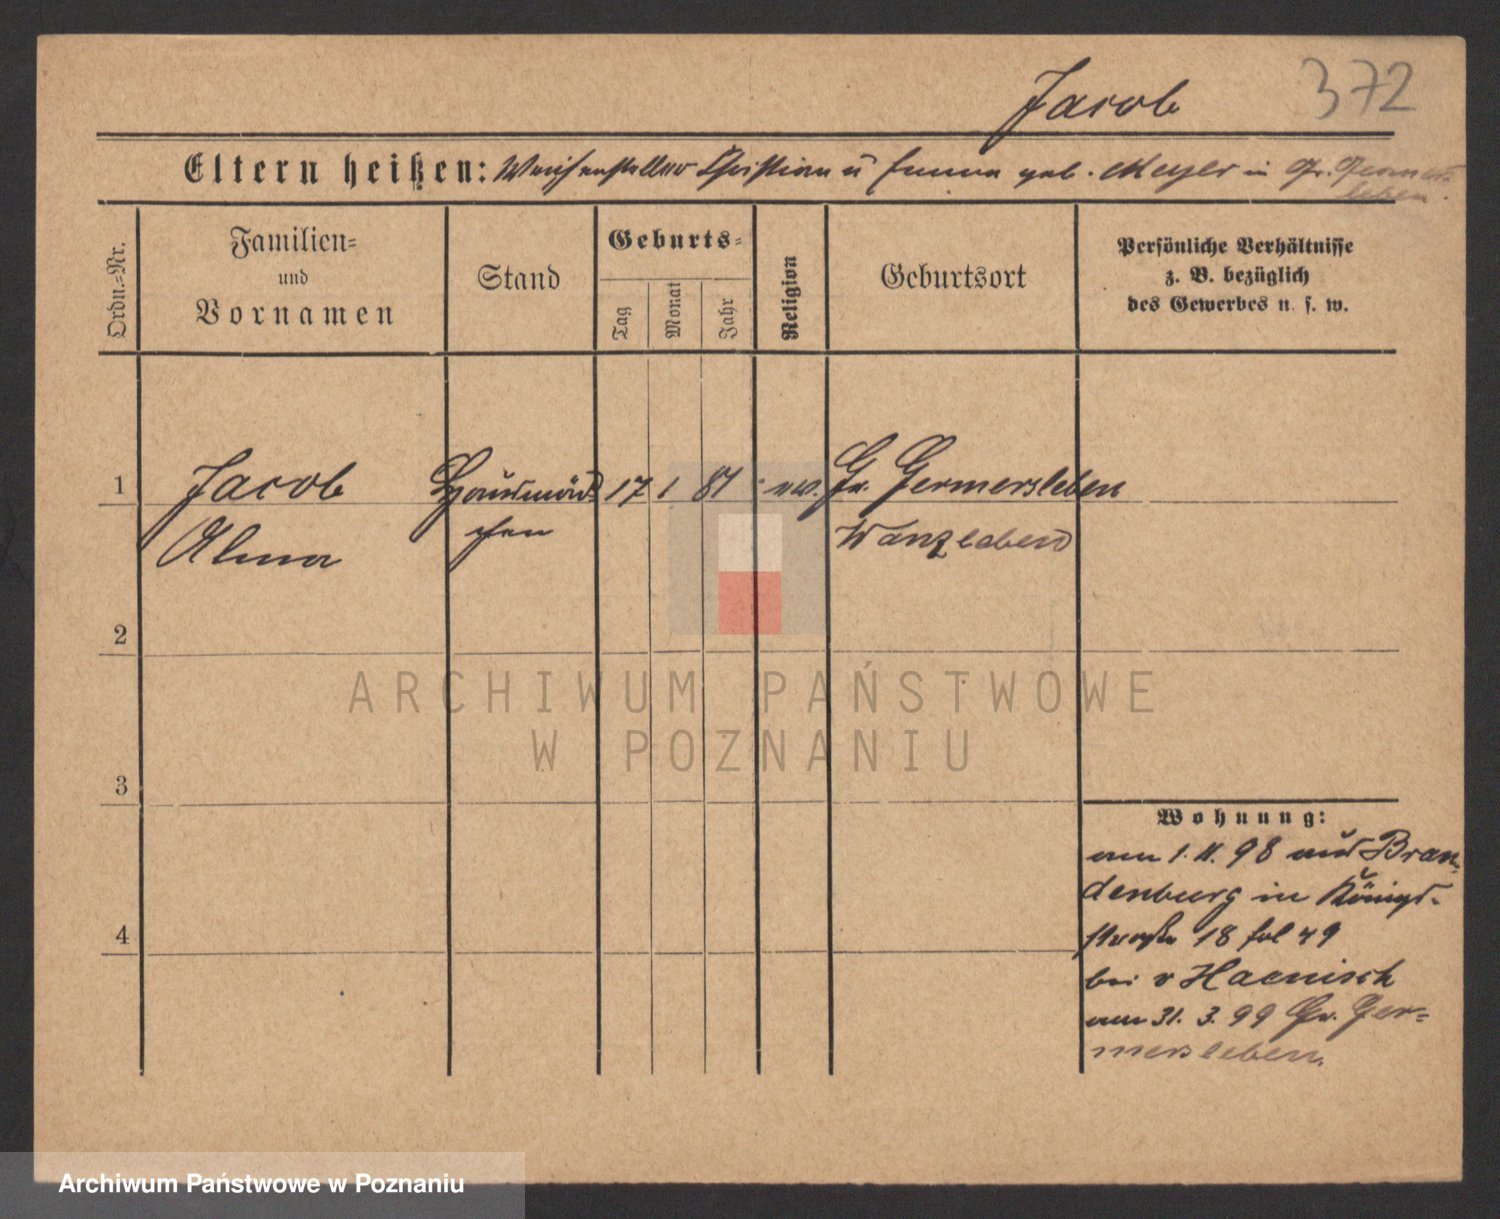 Jacob 372
Eltern heißen: Weichensteller Christian u Emma geb. Meyer in Gr. Germers
leben.
Ordn.=Nr.
Familien=
und
Vornamen
Stand
Geburts=
Tag
Monat
Jahr
Religion
Geburtsort
Persönliche Verhältnisse
z. B. bezüglich
des Gewerbes u. s. w.
1 Jacob Hausmäd 17 1 81 ev. Gr. Germersleben
Alma chen Wanzleben
2
3
4
Wohnung:
am 1. 11. 98 aus Bran
denburg in Königs-
straße 18 fol 49
bei v Haenisch
am 31. 3. 99 Gr. Ger=
mersleben.
ARCHIWUM PAŃSTWOWE
W POZNANIU
Archiwum Państwowe w Poznaniu